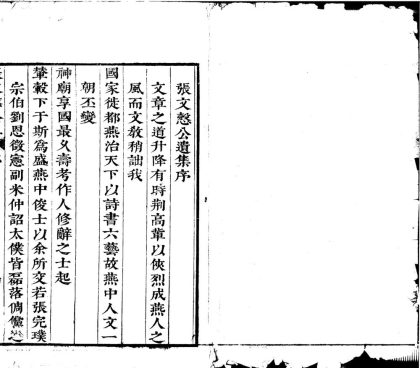 張文愨公遺集序
文章之道升降有時荆高輩以俠烈成燕人之
風而文教稍詘我
國家徙都燕治天下以詩書六藝故燕中人文一
朝丕變
神廟享國最久壽考作人修辭之士起
輦轂下于斯為盛燕中俊士以余所交若張完璞
宗伯劉恩徵憲副米仲詔太僕皆磊落倜儻之